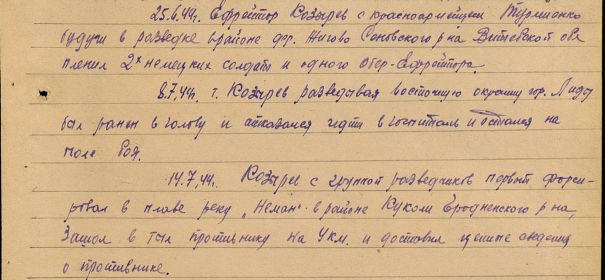 25.6.44г. Ефрейтор Козырев с красноармейцем Турманко
будучи в разведке в районе дер. Жигово Сеновского р-на Витебской обл
пленил 2х немецких солдат и одного обер-Ефрейтора.
8.7.44г. т. Козырев разведывая восточную окраину гор. Лиду
был ранен в голову и отказался идти в госпиталь и остался на
поле боя.
14.7.44г. Козырев с группой разведчиков первый форси-
ровал в плавь реку "Неман" в районе Куколи Гродненского р-на,
Зашол в тыл противнику на 4 км. и доставил ценные сведения
о противнике.